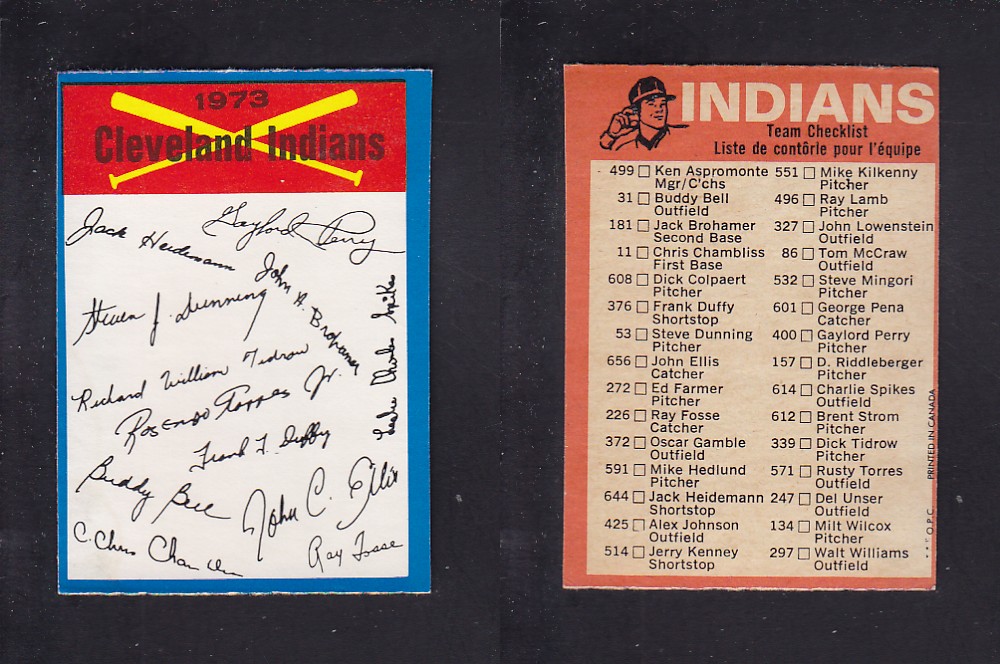 1973
Cleveland Indians
Jack Heidemann
Gaylord Perry
John A. Brohamer
Steven J. Dunning
Leslie Charles Spikes
Richard William Tidrow
Rosendo Torres Jr.
Frank T. Duffy
Buddy Bell
John C. Ellis
C. Chris Chambliss
Ray Fosse
INDIANS
Team Checklist
Liste de contôrle pour l'équipe
499 Ken Aspromonte
Mgr/C'chs
31 Buddy Bell
Outfield
181 Jack Brohamer
Second Base
11 Chris Chambliss
First Base
608 Dick Colpaert
Pitcher
376 Frank Duffy
Shortstop
53 Steve Dunning
Pitcher
656 John Ellis
Catcher
272 Ed Farmer
Pitcher
226 Ray Fosse
Catcher
372 Oscar Gamble
Outfield
591 Mike Hedlund
Pitcher
644 Jack Heidemann
Shortstop
425 Alex Johnson
Outfield
514 Jerry Kenney
Shortstop
551 Mike Kilkenny
Pitcher
496 Ray Lamb
Pitcher
327 John Lowenstein
Outfield
86 Tom McCraw
Outfield
532 Steve Mingori
Pitcher
601 George Pena
Catcher
400 Gaylord Perry
Pitcher
157 D. Riddleberger
Pitcher
614 Charlie Spikes
Outfield
612 Brent Strom
Pitcher
339 Dick Tidrow
Pitcher
571 Rusty Torres
Outfield
247 Del Unser
Outfield
134 Milt Wilcox
Pitcher
297 Walt Williams
Outfield
***O.P.C. PRINTED IN CANADA